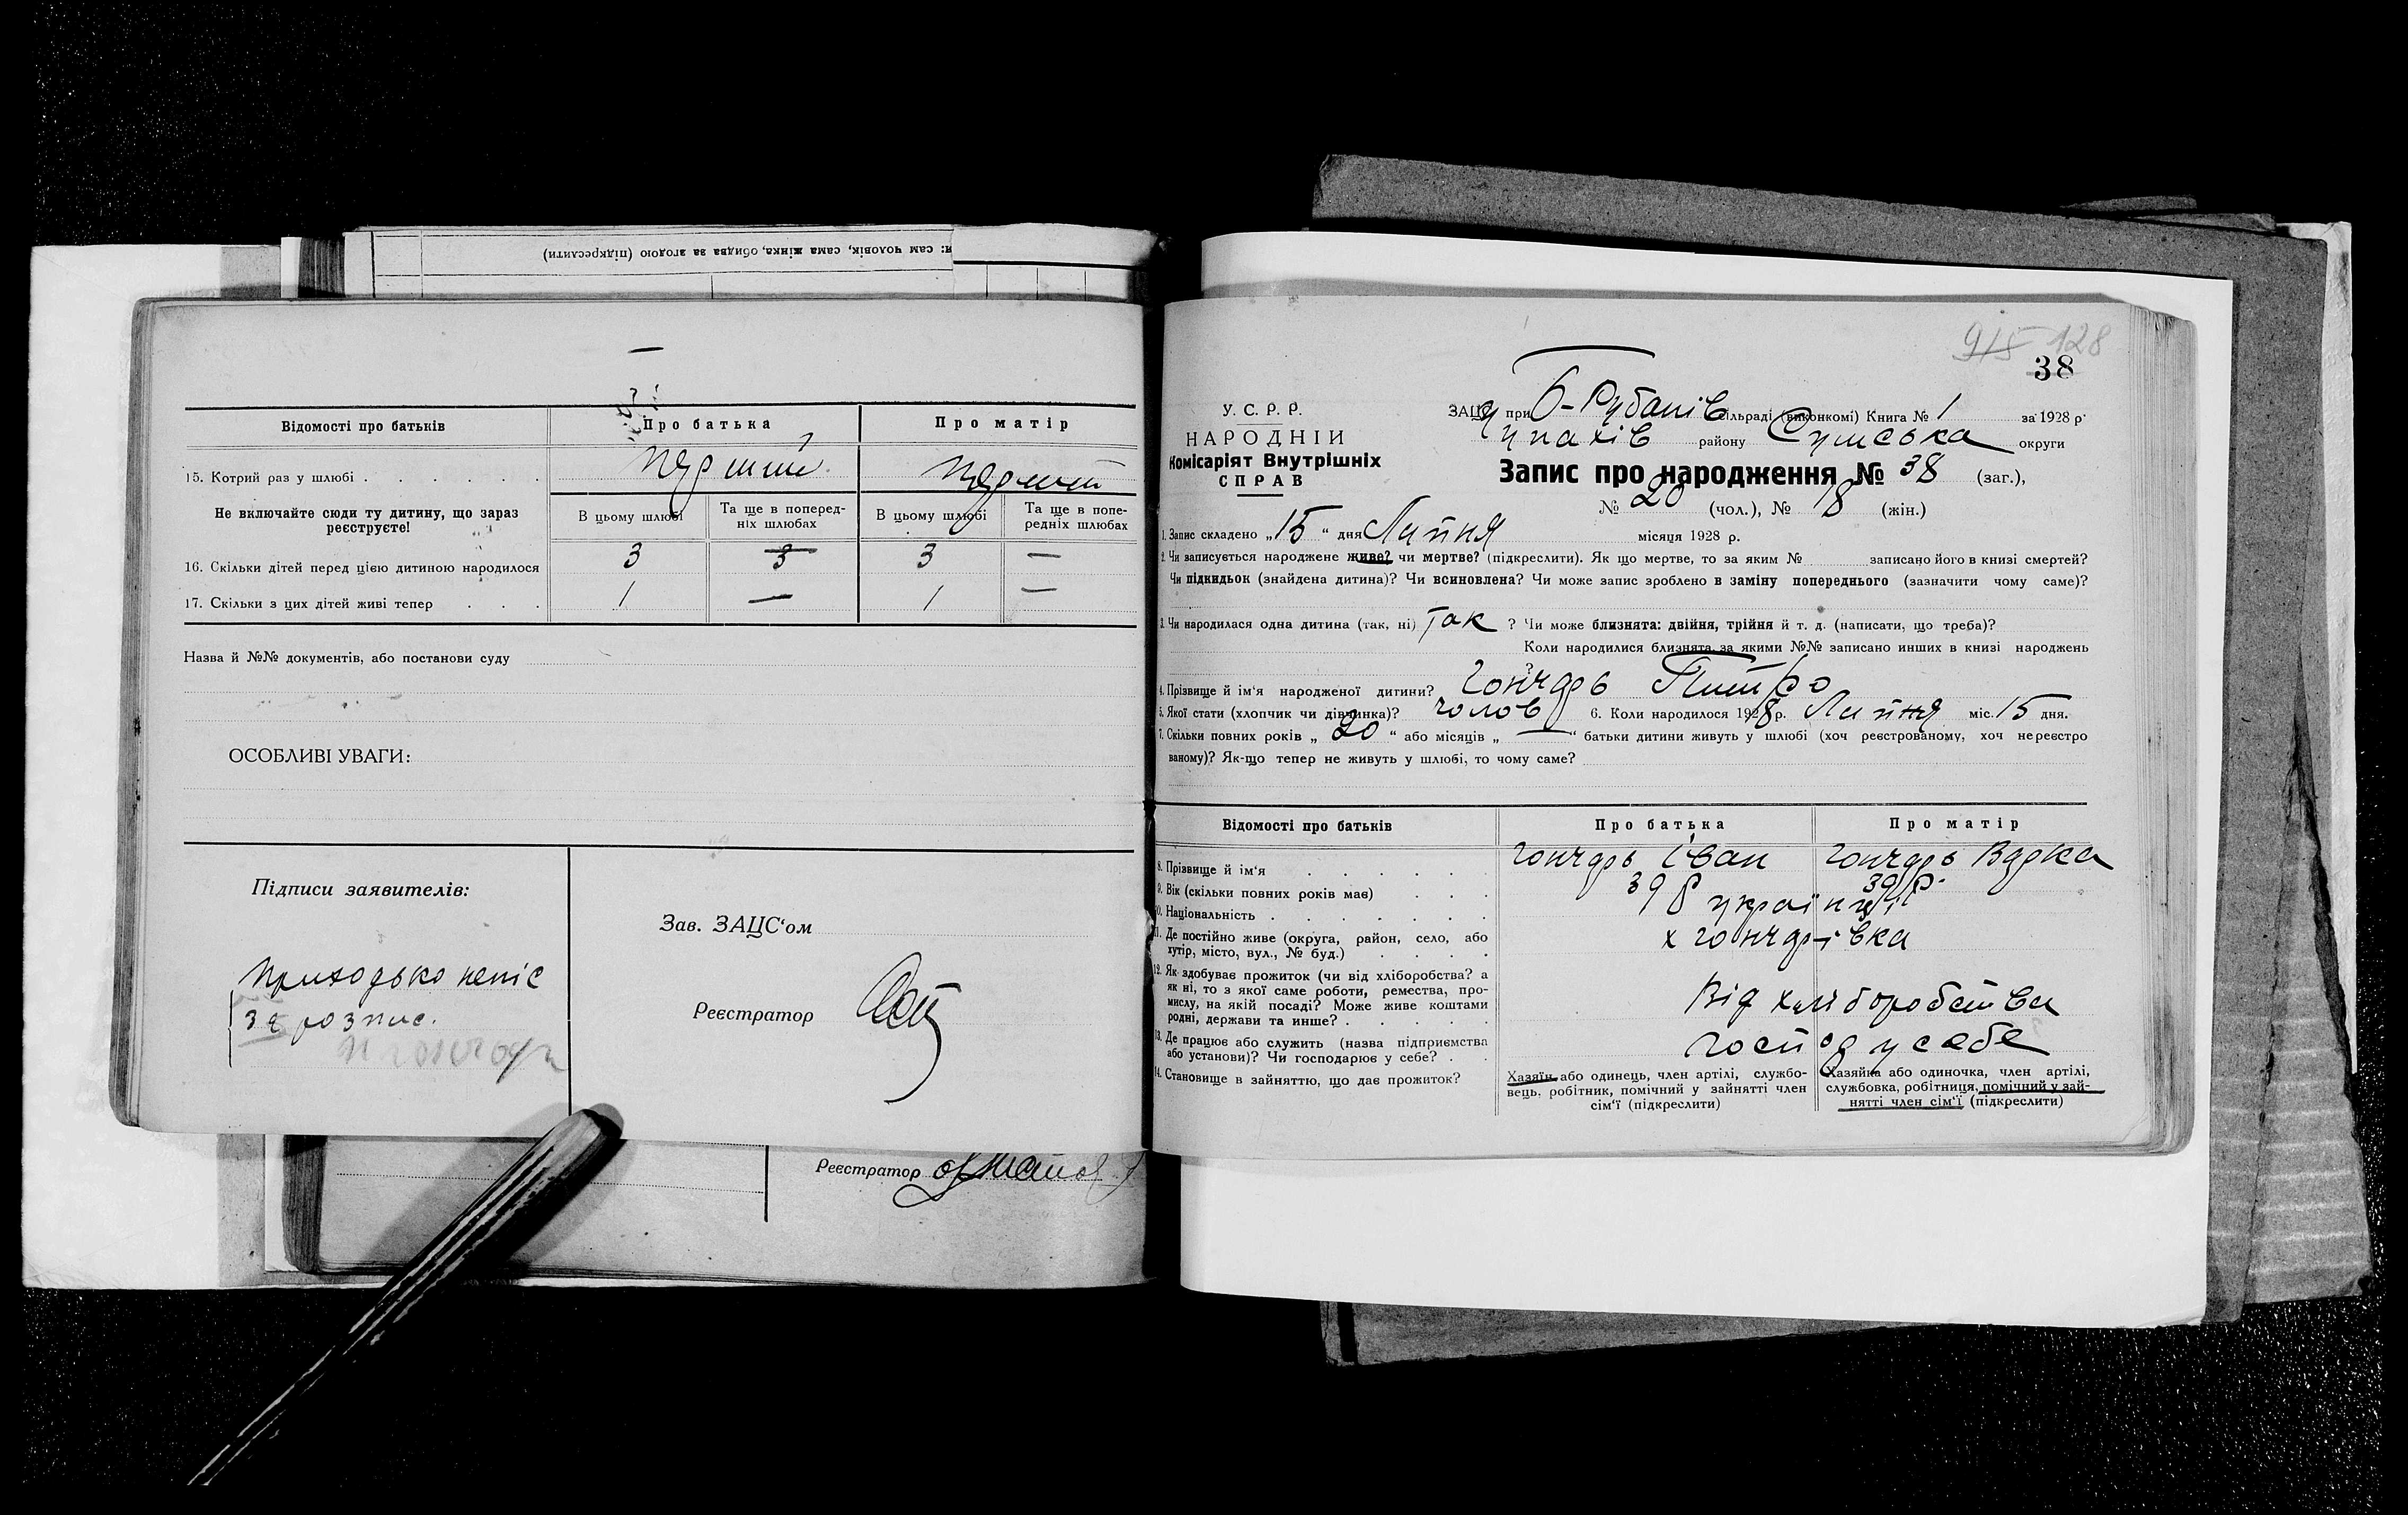 и: сам чоловік, сама жінка, обидва за згодою (підкреслити)
Відомості про батьків
Про батька
Про матір
15. Котрий раз у шлюбі
первий
первий
Не включайте сюди ту дитину, що зараз реєструєте!
В цьому шлюбі
Та ще в попередніх шлюбах
В цьому шлюбі
Та ще в попередніх шлюбах
16. Скільки дітей перед цією дитиною народилося
3
3
3
—
17. Скільки з цих дітей живі тепер
1
—
1
—
Назва й №№ документів, або постанови суду
ОСОБЛИВІ УВАГИ:
Підписи заявителів:
Приходько непіс
за розпис.
Зав. ЗАЦС‘ом
Реєстратор
Реєстратор
915 128
38
У. С. Р. Р.
НАРОДНІЙ
Комісаріят Внутрішніх
СПРАВ
ЗАЦС при Б-Рубанів сільраді (виконкомі) Книга № 1 за 1928 р.
району Сумська округи
Запис про народження № 38 (заг.),
№ 20 (чол.), № 18 (жін.)
1. Запис складено „15“ дня Липня місяця 1928 р.
2. Чи записується народжене живе? чи мертве? (підкреслити). Як що мертве, то за яким № записано його в книзі смертей?
Чи підкидьок (знайдена дитина)? Чи всиновлена? Чи може запис зроблено в заміну попереднього (зазначити чому саме)?
3. Чи народилася одна дитина (так, ні) так ? Чи може близнята: двійня, трійня й т. д. (написати, що треба)?
Коли народилися близнята за якими №№ записано инших в книзі народжень
?
4. Прізвище й ім‘я народженої дитини? Гончарь Питро
5. Якої стати (хлопчик чи дівчинка)? чолов 6. Коли народилося 1928 р. Липня міс. 15 дня.
7. Скільки повних років „20“ або місяців „—“ батьки дитини живуть у шлюбі (хоч реєстрованому, хоч нереєстро
ваному)? Як-що тепер не живуть у шлюбі, то чому саме?
Відомості про батьків
Про батька
Про матір
8. Прізвище й ім‘я
Гончарь Іван
Гончарь Варка
9. Вік (скільки повних років має)
39 р
39 р.
10. Національність
українці
11. Де постійно живе (округа, район, село, або
хутір, місто, вул., № буд.)
х Гончарівка
12. Як здобуває прожиток (чи від хліборобства? а
як ні, то з якої саме роботи, ремества, про-
мислу, на якій посаді? Може живе коштами
родні, держави та инше?
Від хліборобства
13. Де працює або служить (назва підприємства
або установи)? Чи господарює у себе?
господ у себе
14. Становище в зайняттю, що дає прожиток?
Хазяїн або одинець, член артілі, службо-
вець, робітник, помічний у занятті член
сім‘ї (підкреслити)
Хазяйка або одиночка, член артілі,
службовка, робітниця, помічний у зай-
нятті член сім‘ї (підкреслити)